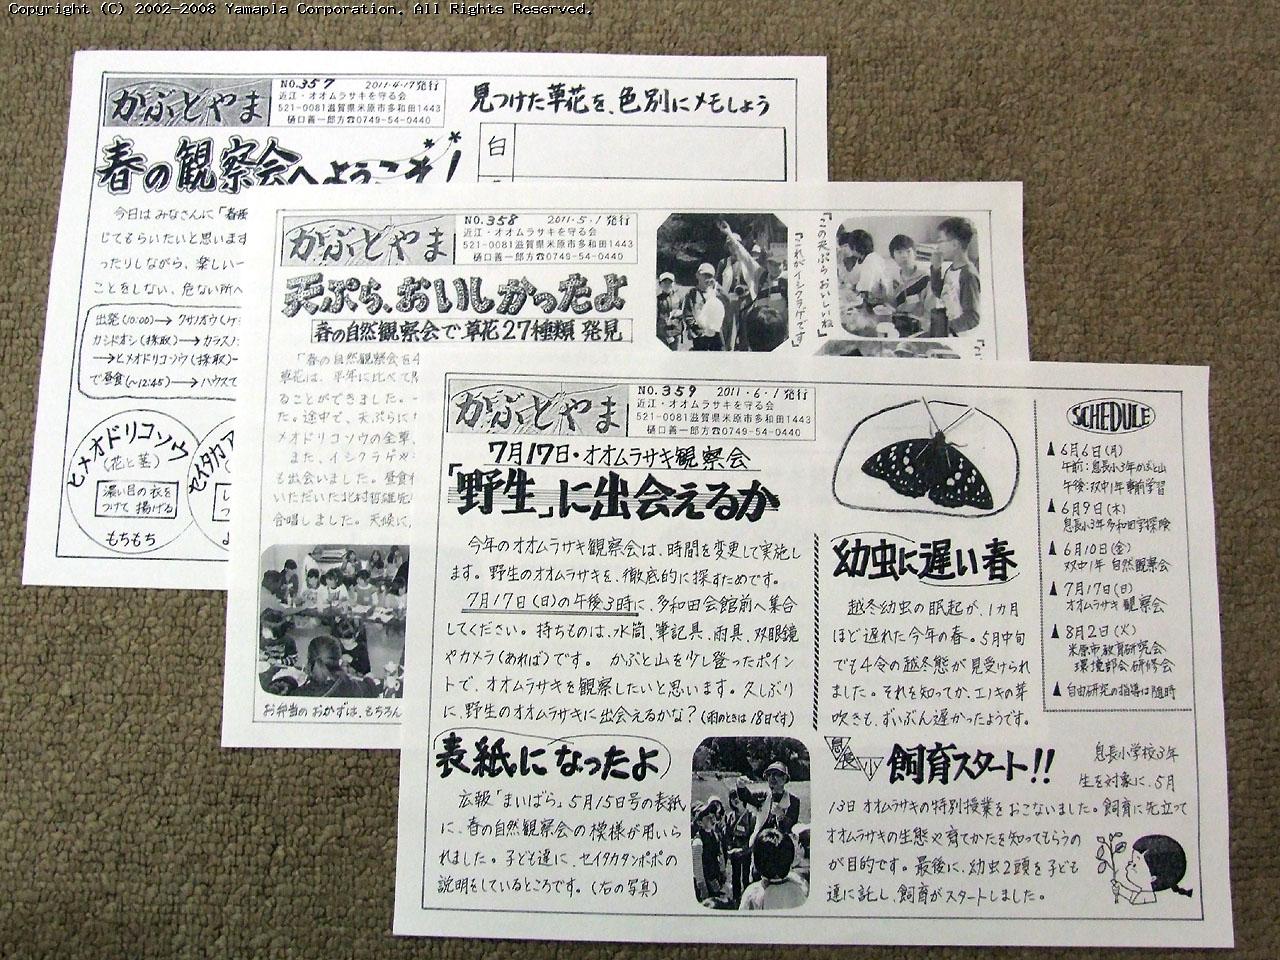 Copyright (C) 2002-2008 Yamapla Corporation. All Rights Reserved.
かぶとやま
NO.357 2011・4・17発行
近江・オオムラサキを守る会
521-0081滋賀県米原市多和田1443
樋口善一郎方☎0749-54-0440
見つけた草花を、色別にメモしよう
白
春の観察会へようこそ!
今日はみなさんに「春
じてもらいたいと思います
ったりしながら、楽しい一
ことをしない、危ない所へ
出発(10:00)→クサノオウ(
カシドオシ(採取)→カラス
→ヒメオドリコソウ(採取)
で昼食(〜12:45)→ハウスで
ヒメオドリコソウ
(花と茎)
濃い目の衣を
つけて揚げる
もちもち
セイタカ
かぶとやま
NO.358 2011・5・1発行
近江・オオムラサキを守る会
521-0081滋賀県米原市多和田1443
樋口善一郎方☎0749-54-0440
天ぷら、おいしかったよ
春の自然観察会で草花27種類発見
「これがイシクラゲです」
「この天ぷら、おいしいね」
「春の自然観察会を4
草花は、平年に比べて
ることができました。
た。途中で、天ぷらに
メオドリコソウの全草、
また、イシクラゲや
も出会いました。昼食
合唱しました。天候に、
お弁当のおかずは、もちろん
かぶとやま
NO.359 2011・6・1発行
近江・オオムラサキを守る会
521-0081滋賀県米原市多和田1443
樋口善一郎方☎0749-54-0440
7月17日・オオムラサキ観察会
「野生」に出会えるか
今年のオオムラサキ観察会は、時間を変更して実施し
ます。野生のオオムラサキを、徹底的に探すためです。
7月17日(日)の午後3時に、多和田会館前へ集合
してください。持ちものは、水筒、筆記具、雨具、双眼鏡
やカメラ(あれば)です。 かぶと山を少し登ったポイン
トで、オオムラサキを観察したいと思います。久しぶり
に、野生のオオムラサキに出会えるかな?(雨のときは18日です)
幼虫に遅い春
越冬幼虫の眠起が、1カ月
ほど遅れた今年の春。5月中旬
でも4令の越冬態が見受けられ
ました。それを知ってか、エノキの芽
吹きも、ずいぶん遅かったようです。
SCHEDULE
▲6月6日(月)
午前:息長小3年かぶと山
午後:双中1年事前学習
▲6月9日(木)
息長小3年多和田学探険
▲6月10日(金)
双中1年 自然観察会
▲7月17日(日)
オオムラサキ観察会
▲8月2日(火)
米原市教育研究会
環境部会研修会
▲自由研究の指導は随時
表紙になったよ
広報「まいばら」5月15日号の表紙
に、春の自然観察会の模様が用いら
れました。子ども達に、セイタカタンポポの
説明をしているところです。(右の写真)
息長小 飼育スタート!!
息長小学校3年
生を対象に、5月
13日オオムラサキの特別授業をおこないました。飼育に先立って
オオムラサキの生態や育てかたを知ってもらうの
が目的です。最後に、幼虫2頭を子ども
達に託し、飼育がスタートしました。